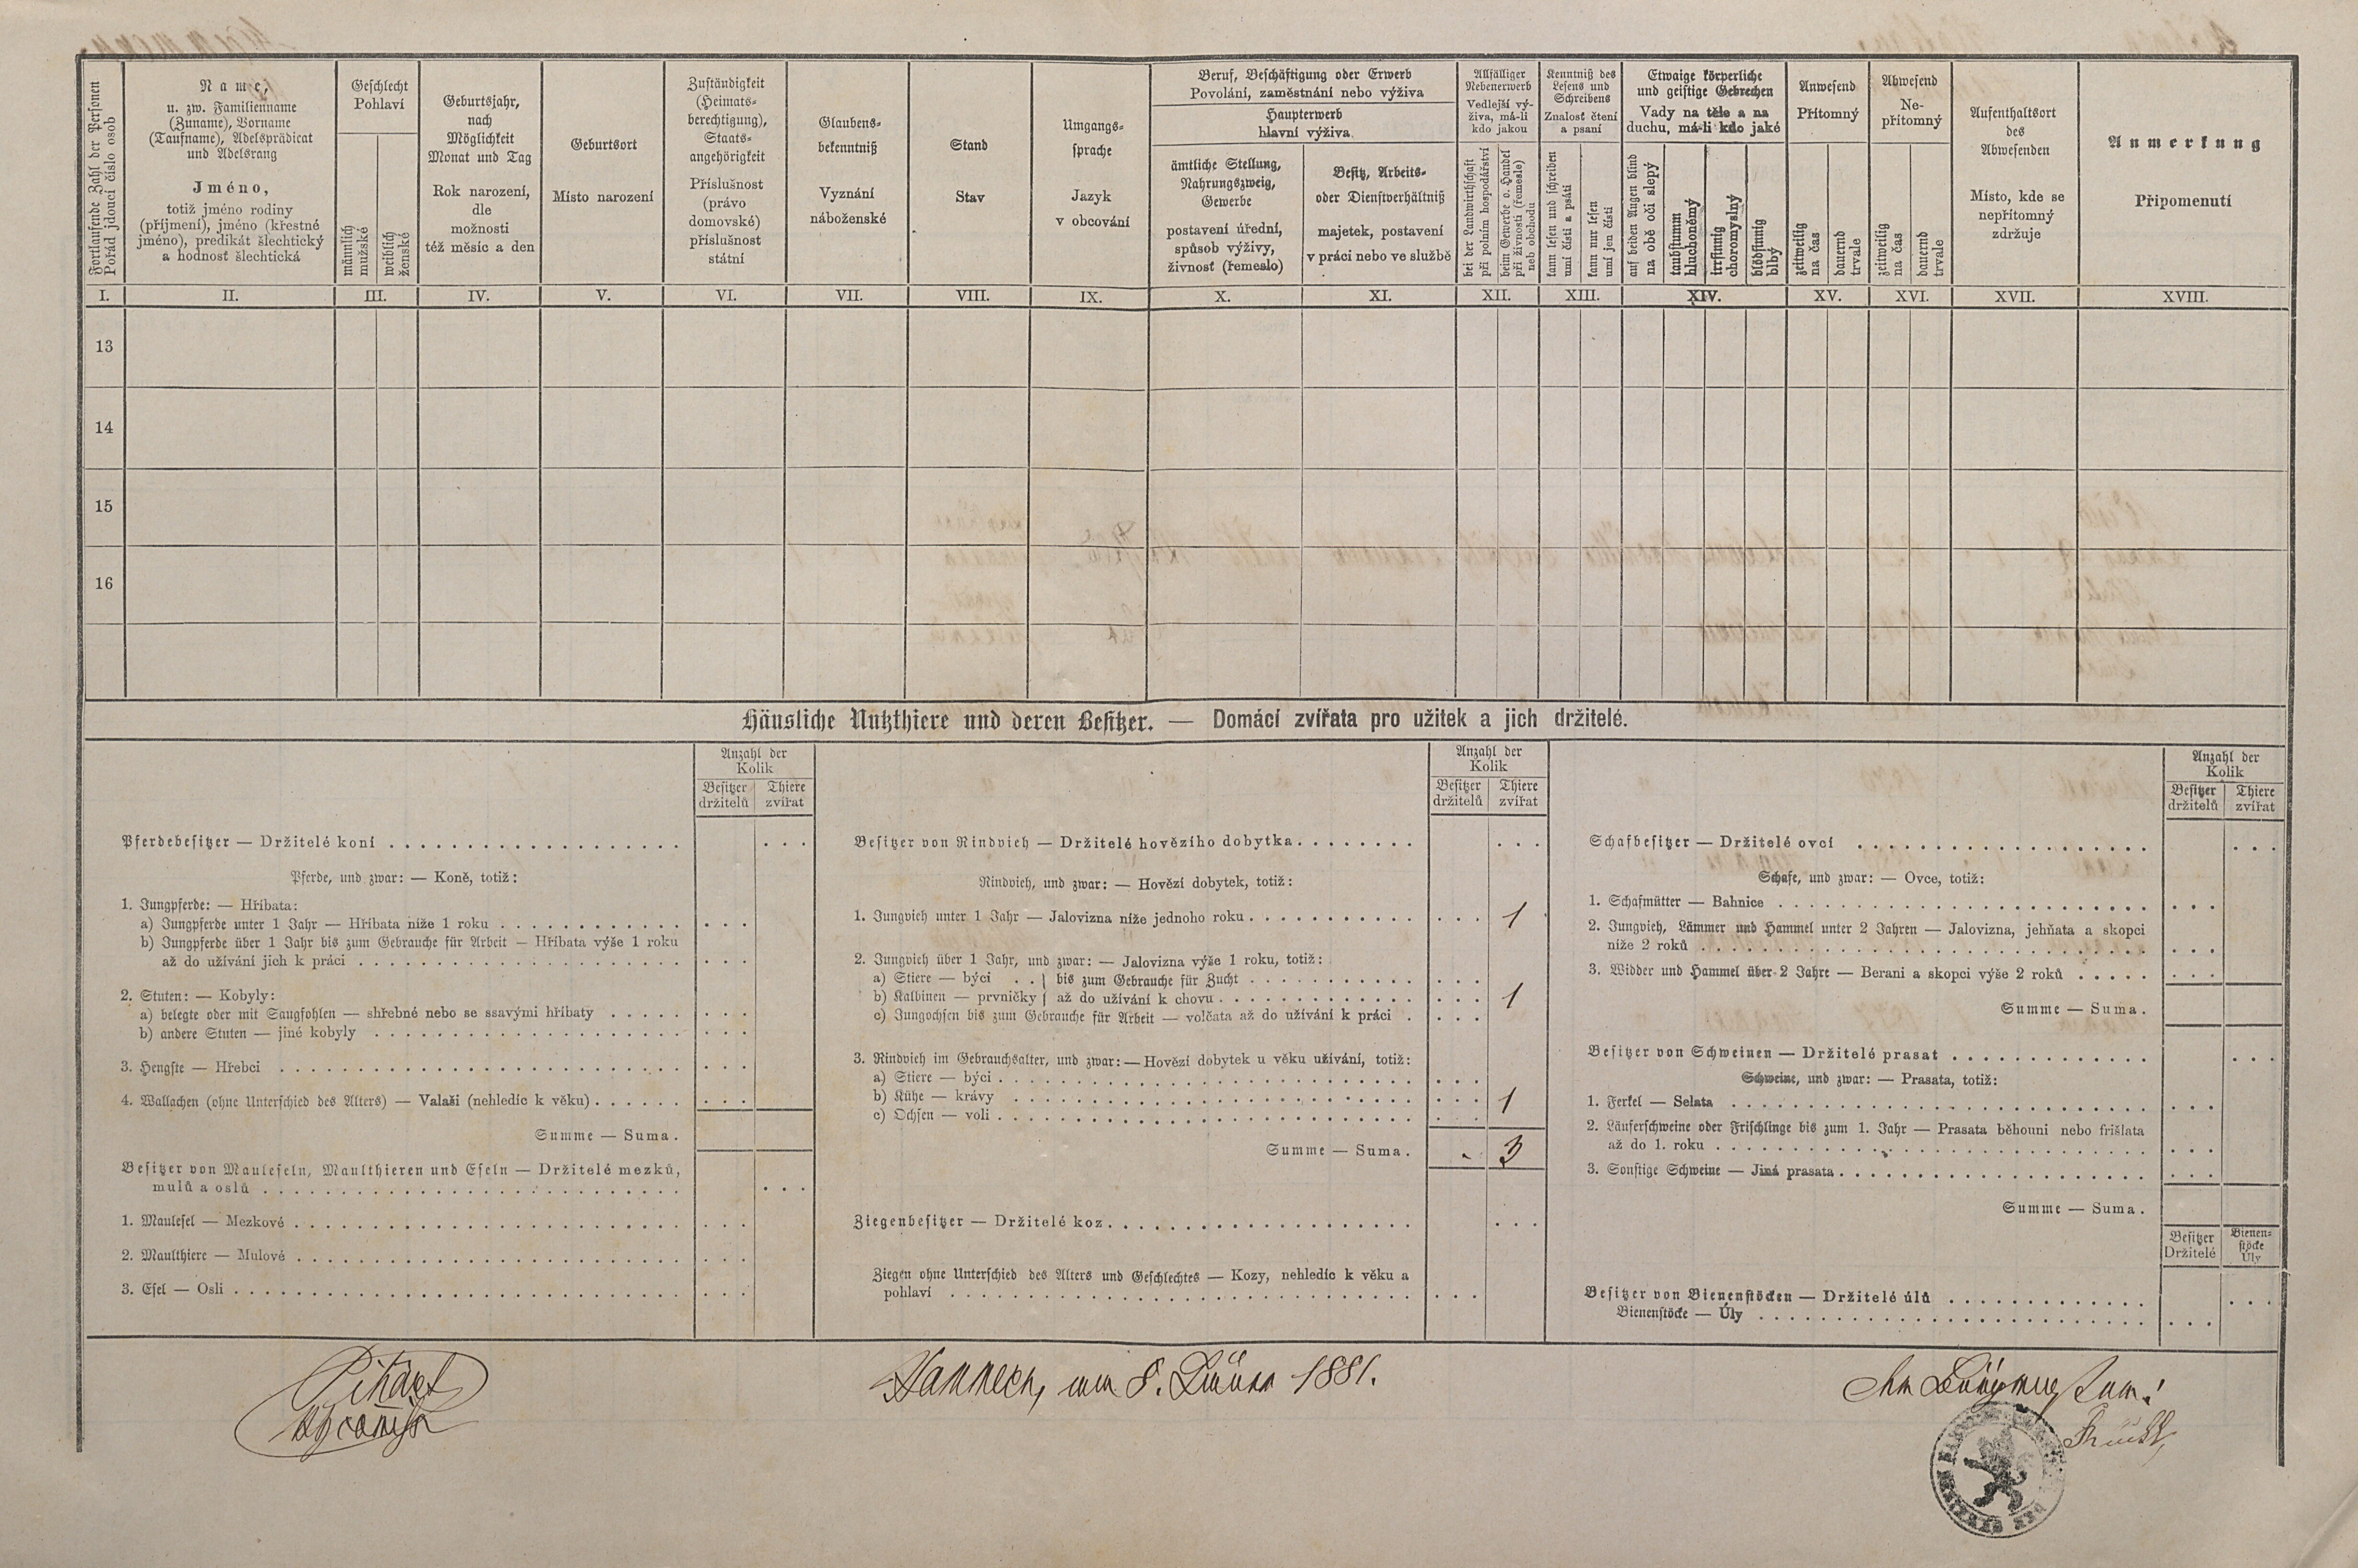 Fortlaufende Zahl der Personen
Pořád jdoucí číslo osob
Name,
u. zw. Familienname
(Zuname), Vorname
(Taufname), Adelsprädicat
und Adelsrang
Jméno,
totiž jméno rodiny
(příjmení), jméno (křestné
jméno), predikát šlechtický
a hodnosť šlechtická
Geschlecht
Pohlaví
männlich
mužské
weiblich
ženské
Geburtsjahr,
nach
Möglichkeit
Monat und Tag
Rok narození,
dle
možnosti
též měsíc a den
Geburtsort
Místo narození
Zuständigkeit
(Heimats-
berechtigung),
Staats-
angehörigkeit
Příslušnost
(právo
domovské)
příslušnost
státní
Glaubens-
bekenntniß
Vyznání
náboženské
Stand
Stav
Umgangs-
sprache
Jazyk
v obcování
Beruf, Beschäftigung oder Erwerb
Povolání, zaměstnání nebo výživa
Haupterwerb
hlavní výživa
ämtliche Stellung,
Nahrungszweig,
Gewerbe
postavení úřední,
spůsob výživy,
živnosť (řemeslo)
Besitz, Arbeits-
oder Dienstverhältniß
majetek, postavení
v práci nebo ve službě
Allfälliger
Nebenerwerb
Vedlejší vý-
živa, má-li
kdo jakou
bei der Landwirthschaft
při polním hospodářství
beim Gewerbe o. Handel
při živnosti (řemesle)
neb obchodu
Kenntniß des
Lesens und
Schreibens
Znalosť čtení
a psaní
kann lesen und schreiben
umí čísti a psáti
kann nur lesen
umí jen čísti
Etwaige körperliche
und geistige Gebrechen
Vady na těle a na
duchu, má-li kdo jaké
auf beiden Augen blind
na obě oči slepý
taubstumm
hluchoněmý
irrsinnig
choromyslný
blödsinnig
blbý
Anwesend
Přítomný
zeitweilig
na čas
dauernd
trvale
Abwesend
Ne-
přítomný
zeitweilig
na čas
dauernd
trvale
Aufenthaltsort
des
Abwesenden
Místo, kde se
nepřítomný
zdržuje
Anmerkung
Připomenutí
I. II. III. IV. V. VI. VII. VIII. IX. X. XI. XII. XIII. XIV. XV. XVI. XVII. XVIII.
13
14
15
16
Häusliche Nutzthiere und deren Besitzer. — Domácí zvířata pro užitek a jich držitelé.
Anzahl der
Kolik
Besitzer Thiere
držitelů zvířat
Pferdebesitzer — Držitelé koní
Pferde, und zwar: — Koně, totiž:
1. Jungpferde: — Hříbata:
a) Jungpferde unter 1 Jahr — Hříbata níže 1 roku
b) Jungpferde über 1 Jahr bis zum Gebrauche für Arbeit — Hříbata výše 1 roku
až do užívání jich k práci
2. Stuten: — Kobyly:
a) belegte oder mit Saugfohlen — shřebné nebo se ssavými hříbaty
b) andere Stuten — jiné kobyly
3. Hengste — Hřebci
4. Wallachen (ohne Unterschied des Alters) — Valaši (nehledíc k věku)
Summe — Suma.
Besitzer von Mauleseln, Maulthieren und Eseln — Držitelé mezků,
mulů a oslů
1. Maulesel — Mezkové
2. Maulthiere — Mulové
3. Esel — Osli
Anzahl der
Kolik
Besitzer Thiere
držitelů zvířat
Besitzer von Rindvieh — Držitelé hovězího dobytka
Rindvieh, und zwar: — Hovězí dobytek, totiž:
1. Jungvieh unter 1 Jahr — Jalovizna níže jednoho roku 1
2. Jungvieh über 1 Jahr, und zwar: — Jalovizna výše 1 roku, totiž:
a) Stiere — býci } bis zum Gebrauche für Zucht
b) Kalbinen — prvničky } až do užívání k chovu 1
c) Jungochsen bis zum Gebrauche für Arbeit — volčata až do užívání k práci
3. Rindvieh im Gebrauchsalter, und zwar: — Hovězí dobytek u věku užívání, totiž:
a) Stiere — býci
b) Kühe — krávy 1
c) Ochsen — voli
Summe — Suma. 3
Ziegenbesitzer — Držitelé koz
Ziegen ohne Unterschied des Alters und Geschlechtes — Kozy, nehledíc k věku a
pohlaví
Anzahl der
Kolik
Besitzer Thiere
držitelů zvířat
Schafbesitzer — Držitelé ovcí
Schafe, und zwar: — Ovce, totiž:
1. Schafmütter — Bahnice
2. Jungvieh, Lämmer und Hammel unter 2 Jahren — Jalovizna, jehňata a skopci
níže 2 roků
3. Widder und Hammel über 2 Jahre — Berani a skopci výše 2 roků
Summe — Suma.
Besitzer von Schweinen — Držitelé prasat
Schweine, und zwar: — Prasata, totiž:
1. Ferkel — Selata
2. Läuferschweine oder Frischlinge bis zum 1. Jahr — Prasata běhouni nebo frišlata
až do 1. roku
3. Sonstige Schweine — Jiná prasata
Summe — Suma.
Besitzer Bienen-
Držitelé stöcke
Úly
Besitzer von Bienenstöcken — Držitelé úlů
Bienenstöcke — Úly
am 8. Jänner 1881.